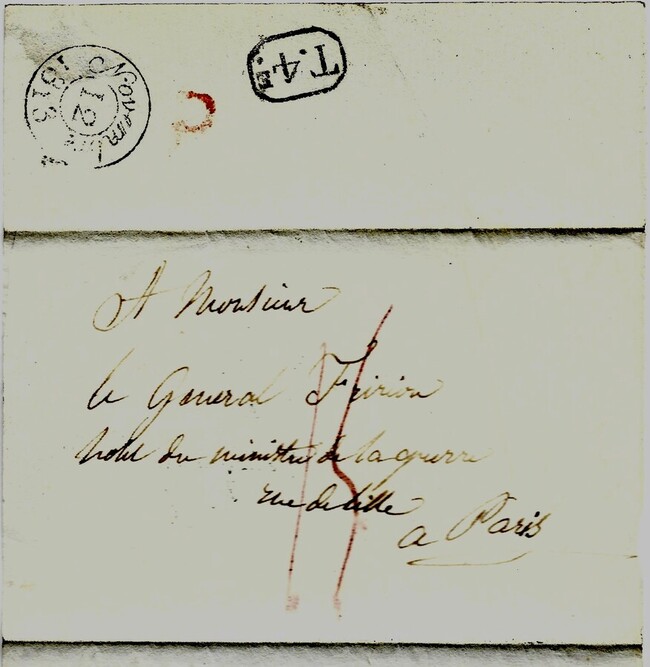 Novembre
12
1813
T.4E
A Monsieur
le General Fririon
hotel du ministre de la guerre
rue de lille
a Paris